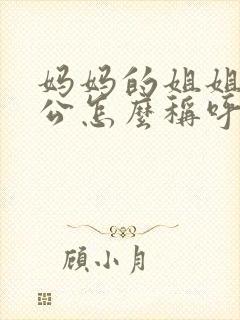 妈妈的姐姐
公怎麼稱呼
顧小月